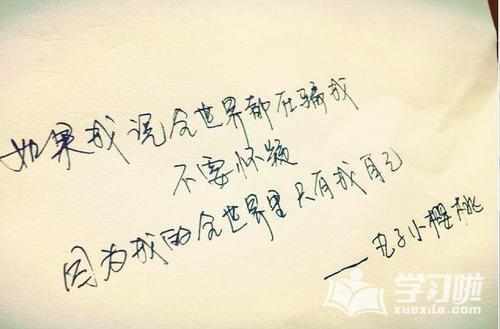 如果我说全世界都在骗我
不要怀疑
因为我的全世界里只有我自己
——丸子小樱桃
学习啦
xuexila.com